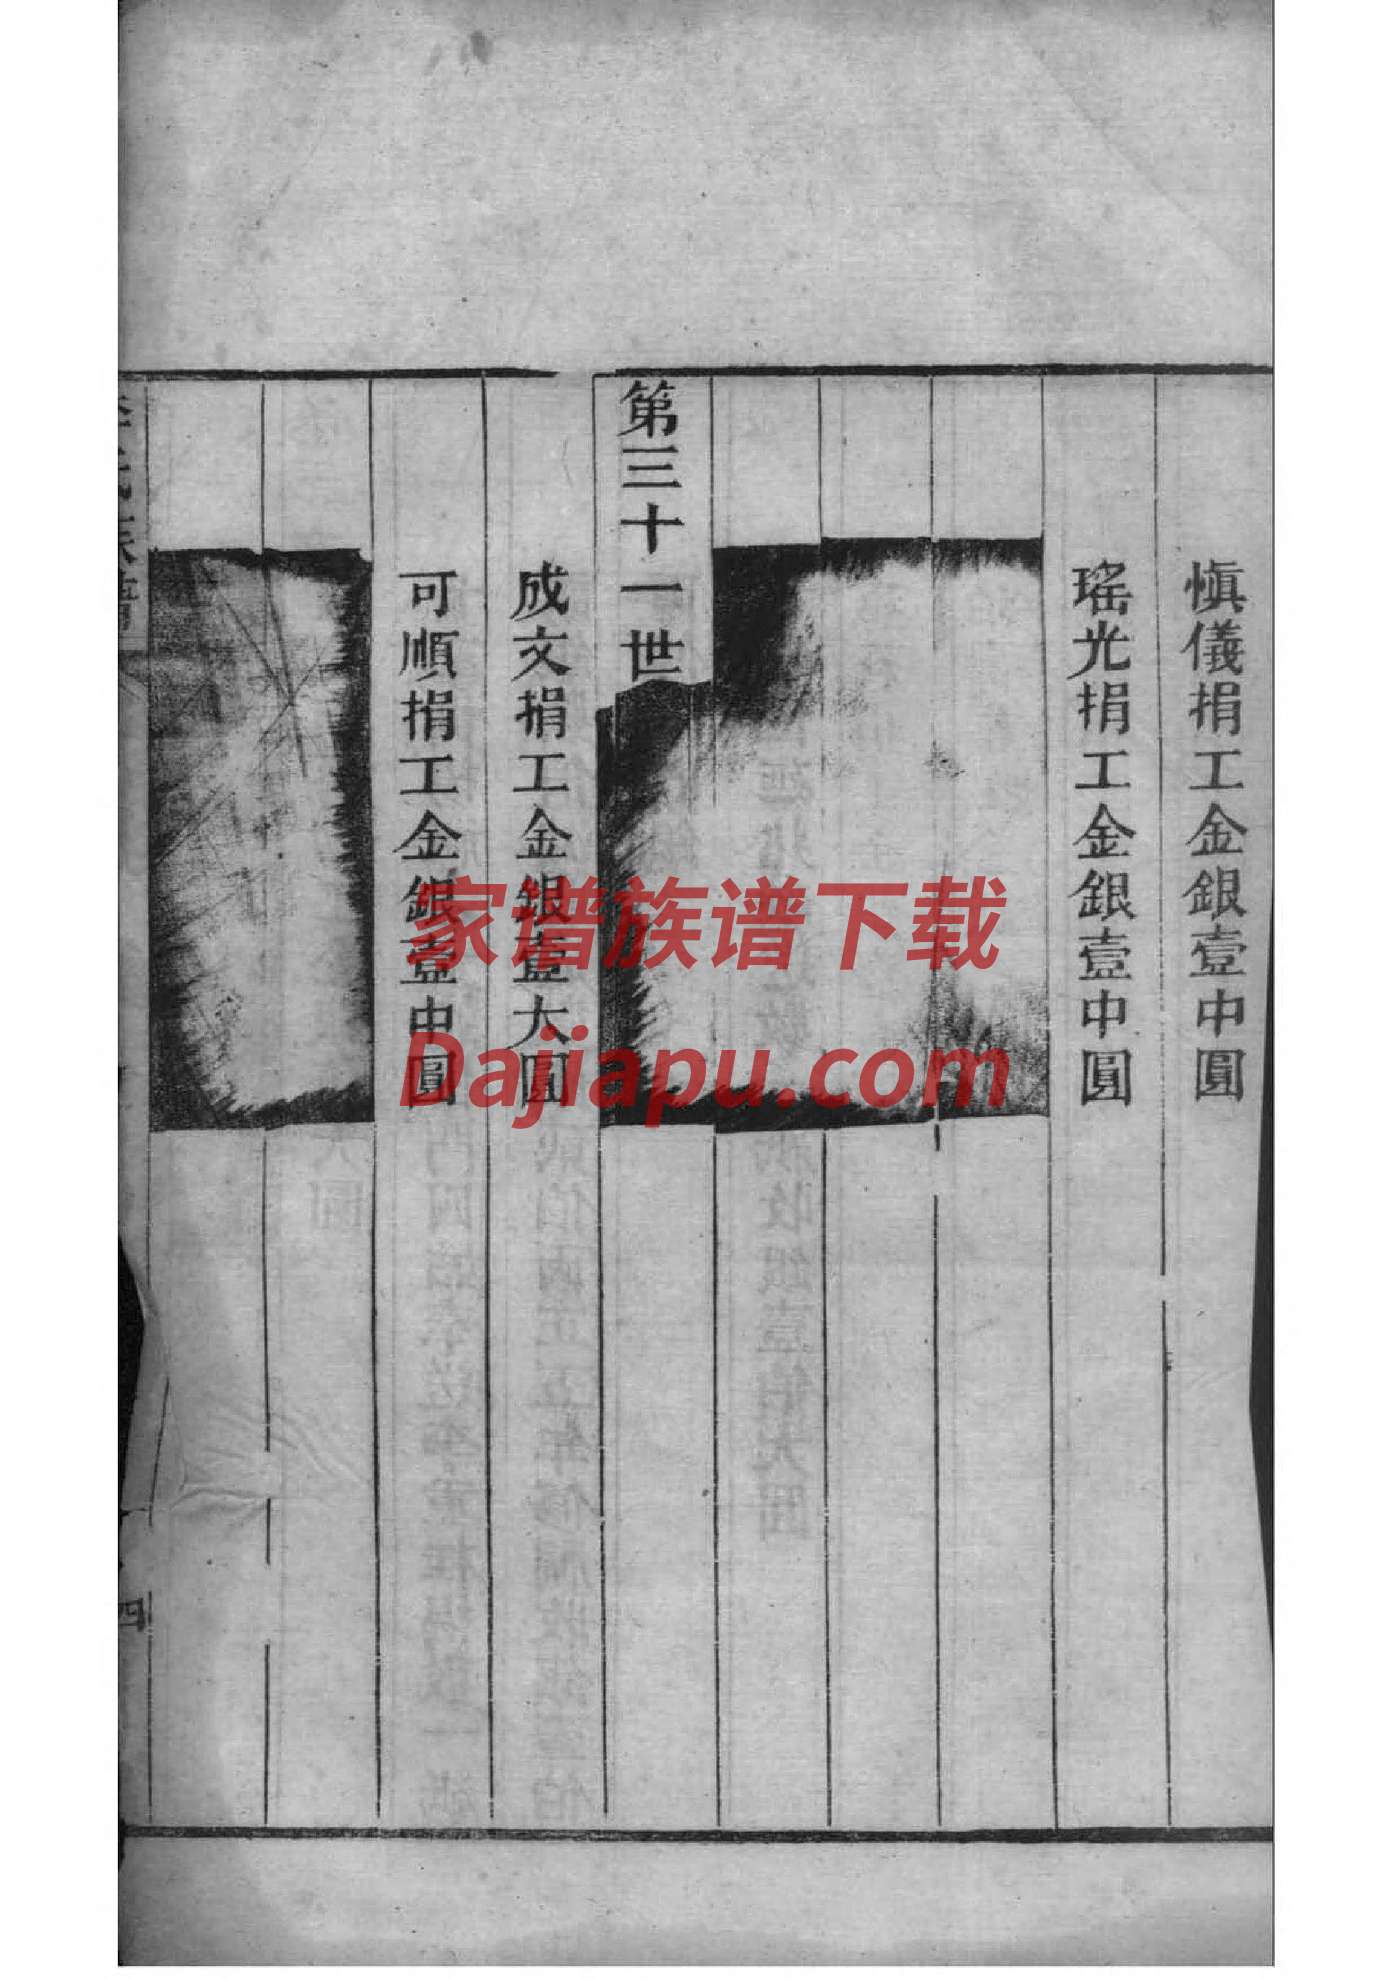 慎儀捐工金銀壹中圓
瑤光捐工金銀壹中圓
第三十一世
成文捐工金銀壹大圓
可順捐工金銀壹中圓
四
家谱族谱下载
Dajiapu.com